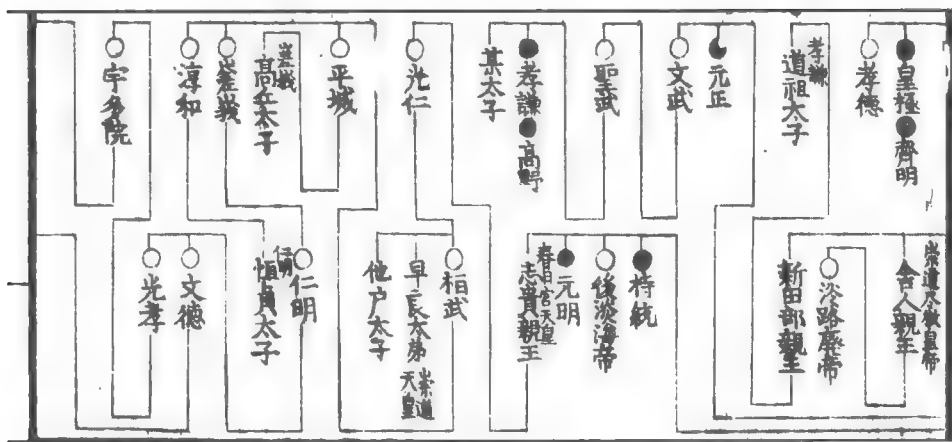 ●皇極●齊明
○孝徳
孝謙
道祖太子
●元正
○文武
○聖武
●孝謙●高野
某太子
○光仁
○平城
嵯峨
高丘太子
○嵯峨
○淳和
○宇多院
崇道尽敬皇帝
舎人親王
○淡路廢帝
新田部親王
●持統
○後淡海帝
●元明
春日宮天皇
志貴親王
○桓武
早良太弟
崇道
天皇
他戸太子
○仁明
仁明
恒貞太子
○文徳
○光孝